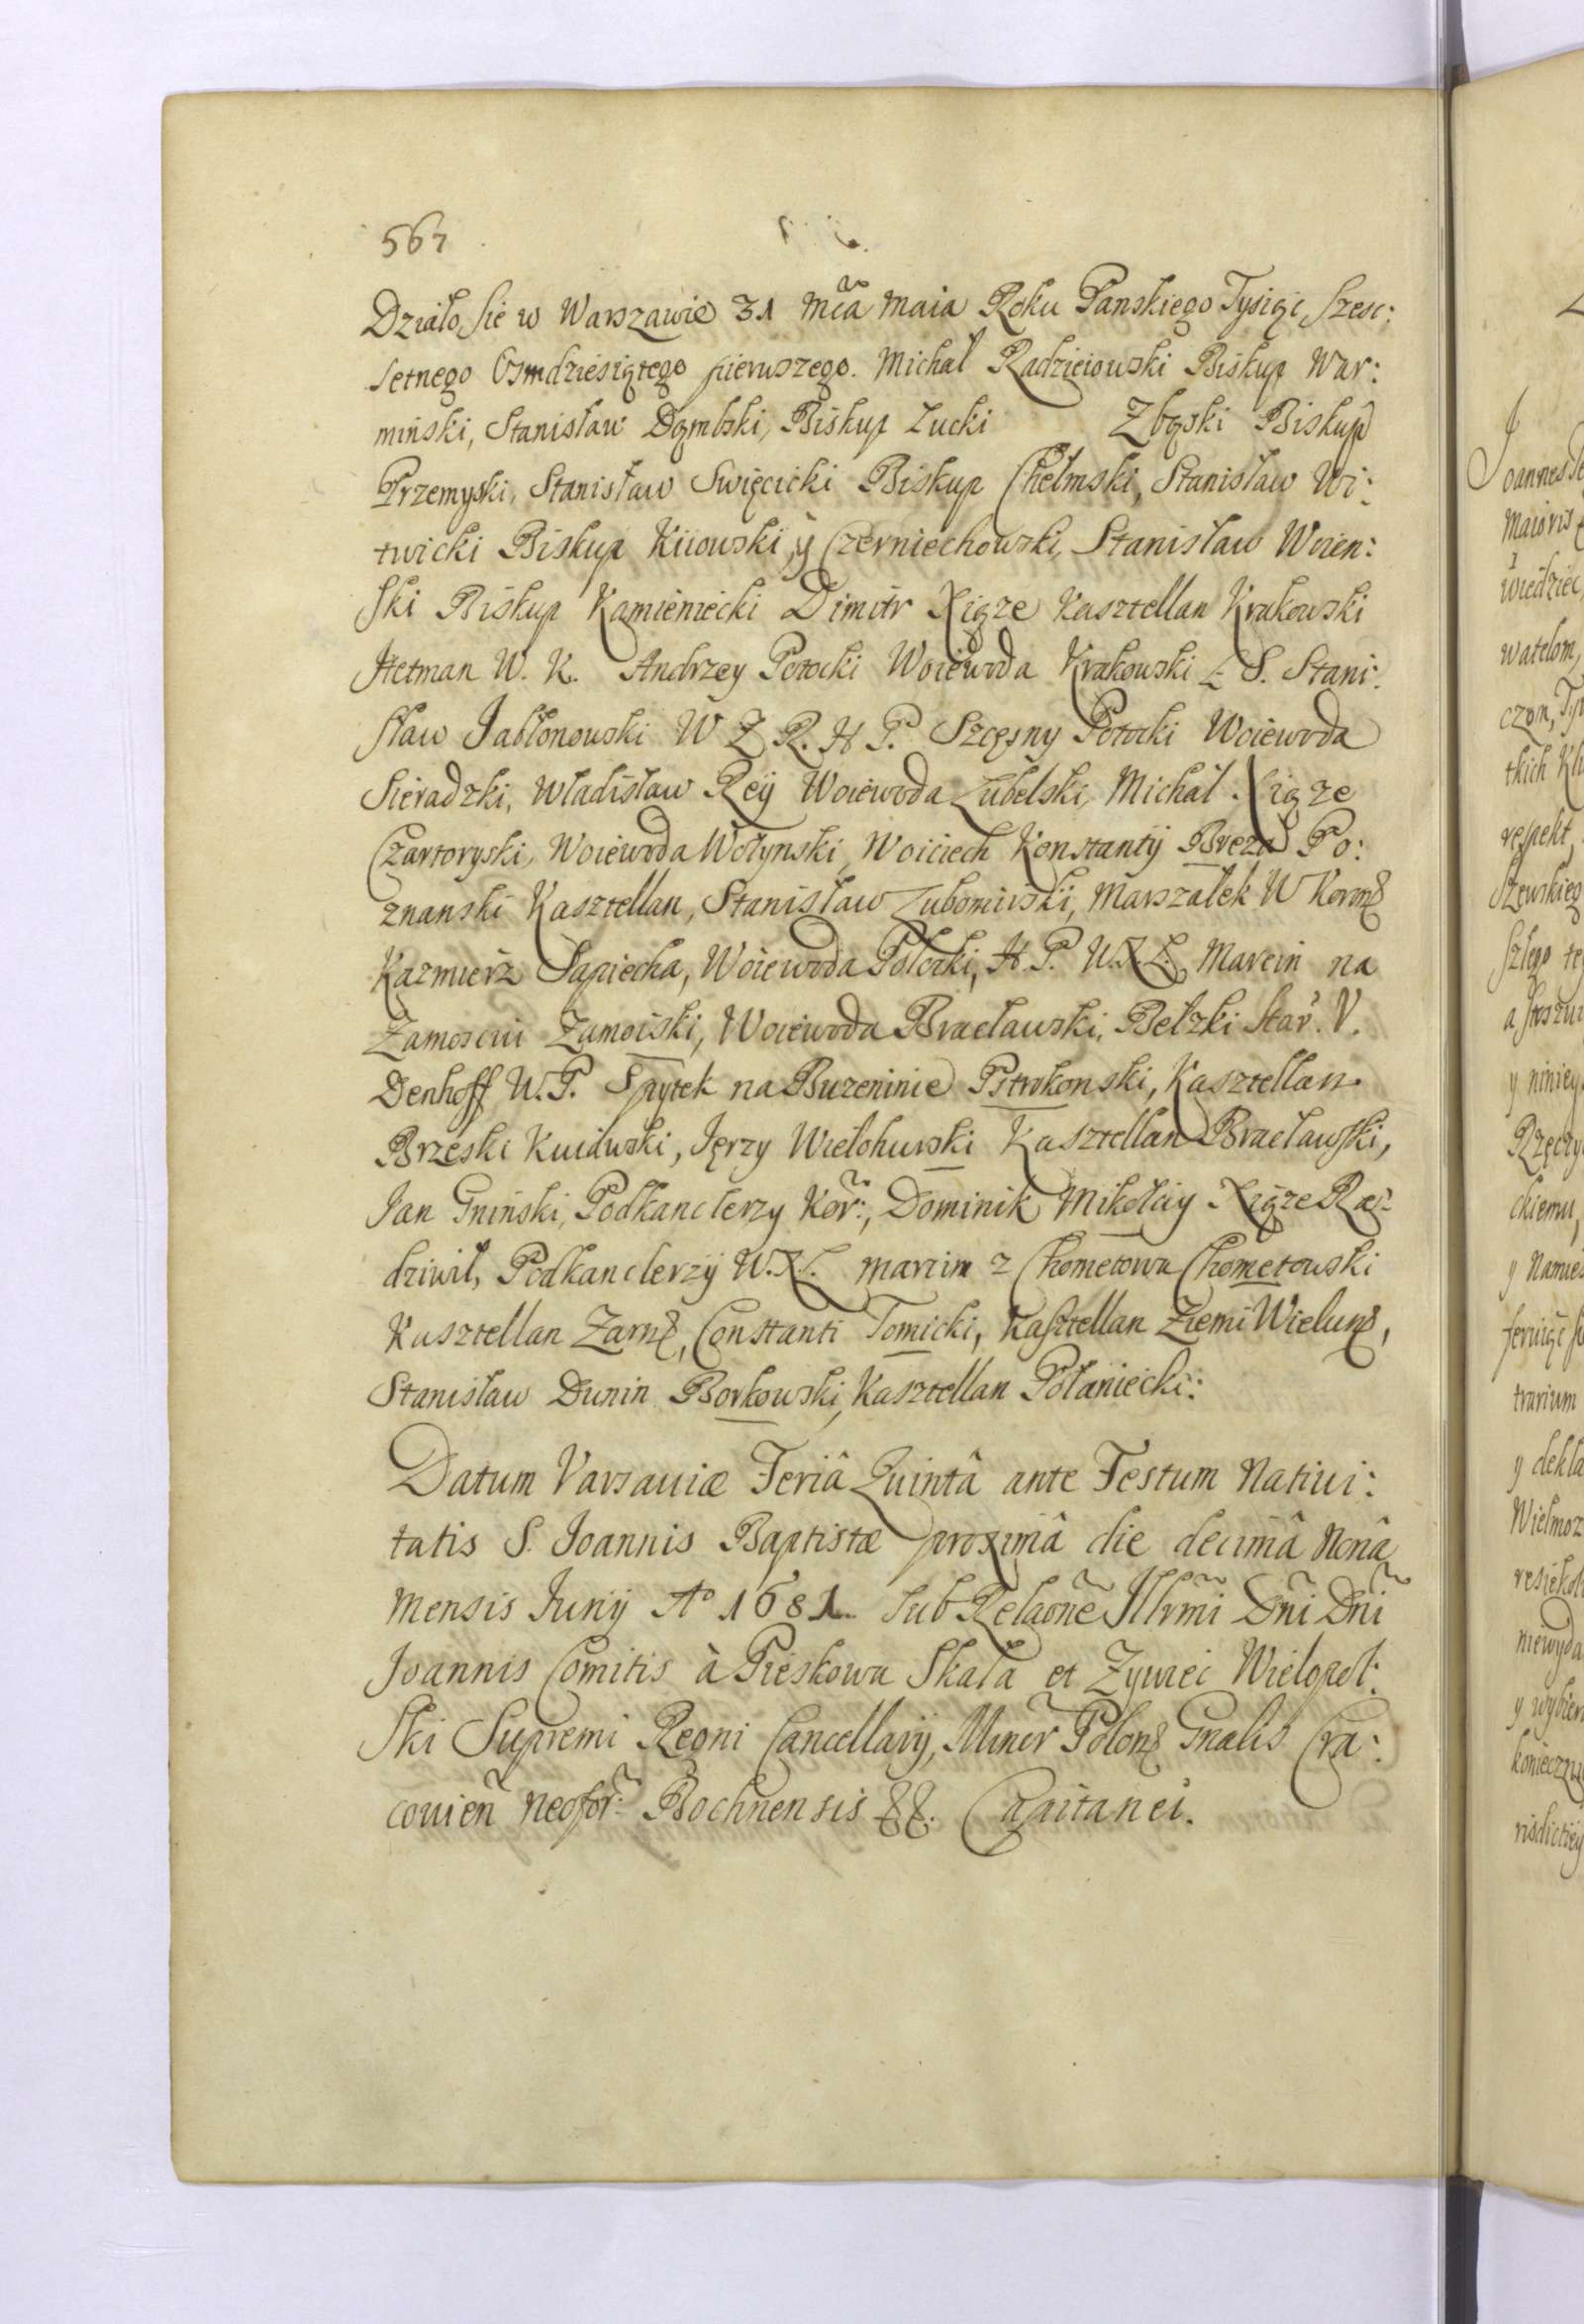 567
Działo Sie w Warszawie 31 Mca Maia Roku Panskiego Tysiąc Szesc:
setnego Osmdziesiątego pierwszego. Michał Radzieiowski Biskup War:
miński, Stanisław Dąmbski, Biskup Łucki Zbąski Biskup
Przemyski, Stanisław Swięcicki Biskup Chełmski, Stanisław Wi:
twicki Biskup Kiiowski, y Czerniechowski, Stanisław Woien:
ski Biskup Kamieniecki Dimitr Xiąze Kasztellan Krakowski
Hetman W. K. Andrzey Potocki Woiewoda Krakowski S. Stani:
sław Jabłonowski W Z R. H P. Szczęsny Potocki Woiewoda
Sieradzki, Władisław Reÿ Woiewoda Lubelski, Michał Xiąze
Czartoryski, Woiewoda Wołynski, Woiciech Konstantÿ Breza Po:
znanski Kasztellan, Stanisław Lubomirski, Marszałek W Koron
Kazmierz Sapiecha, Woiewoda Połocki, H. P. W. X. L. Marcin na
Zamosciu Zamoiski, Woiewoda Bracławski, Bełzki Star. V.
Denhoff W. P. Spytek na Buzeninie Pstrokonski, Kasztellan
Brzeski Kuiawski, Jerzy Wielohurski Kasztellan Bracławski,
Jan Gniński, Podkanclerzy Kor:, Dominik Mikołay Xiąze Ra:
dziwił, Podkanclerzÿ W. X. L. Marcim z Chometowa Chometowski
Kasztellan Zarn, Constanti Tomicki, Kasztellan Ziemi Wielun,
Stanisław Dunin Borkowski, Kasztellan Połaniecki:
Datum Varsaviæ Feriâ Quintâ ante Festum Nativi:
tatis S. Joannis Baptistæ proximâ die decimâ Nonâ
Mensis Junÿ Ao 1681. Sub Relaõne Illrmi Dñi Dñi
Joannis Comitis à Pieskowa Skała et Zywiec Wielopol:
ski Supremi Regni Cancellarÿ, Minor Polon Gnalis Cra:
covien neofor: Bochnensis &&. Capitanei.